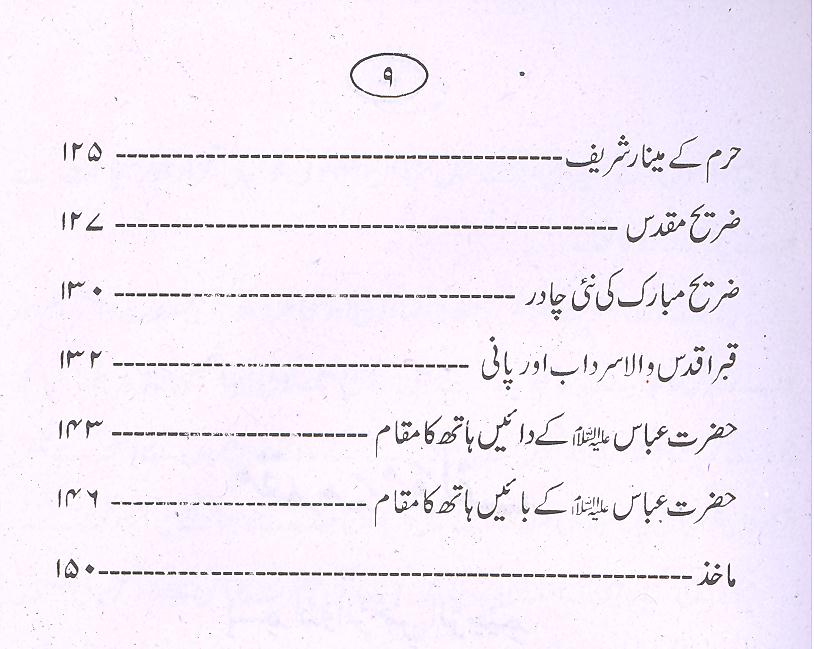 ۹
حرم کے مینار شریف ---------------------------------------- ۱۲۵
ضریح مقدس --------------------------------------------- ۱۲۷
ضریح مبارک کی نئی چادر ------------------------------------ ۱۳۰
قبر اقدس والا سرداب اور پانی -------------------------------- ۱۳۲
حضرت عباس علیہ السلام کے دائیں ہاتھ کا مقام ----------------------- ۱۴۳
حضرت عباس علیہ السلام کے بائیں ہاتھ کا مقام ----------------------- ۱۴۶
ماخذ ----------------------------------------------------- ۱۵۰